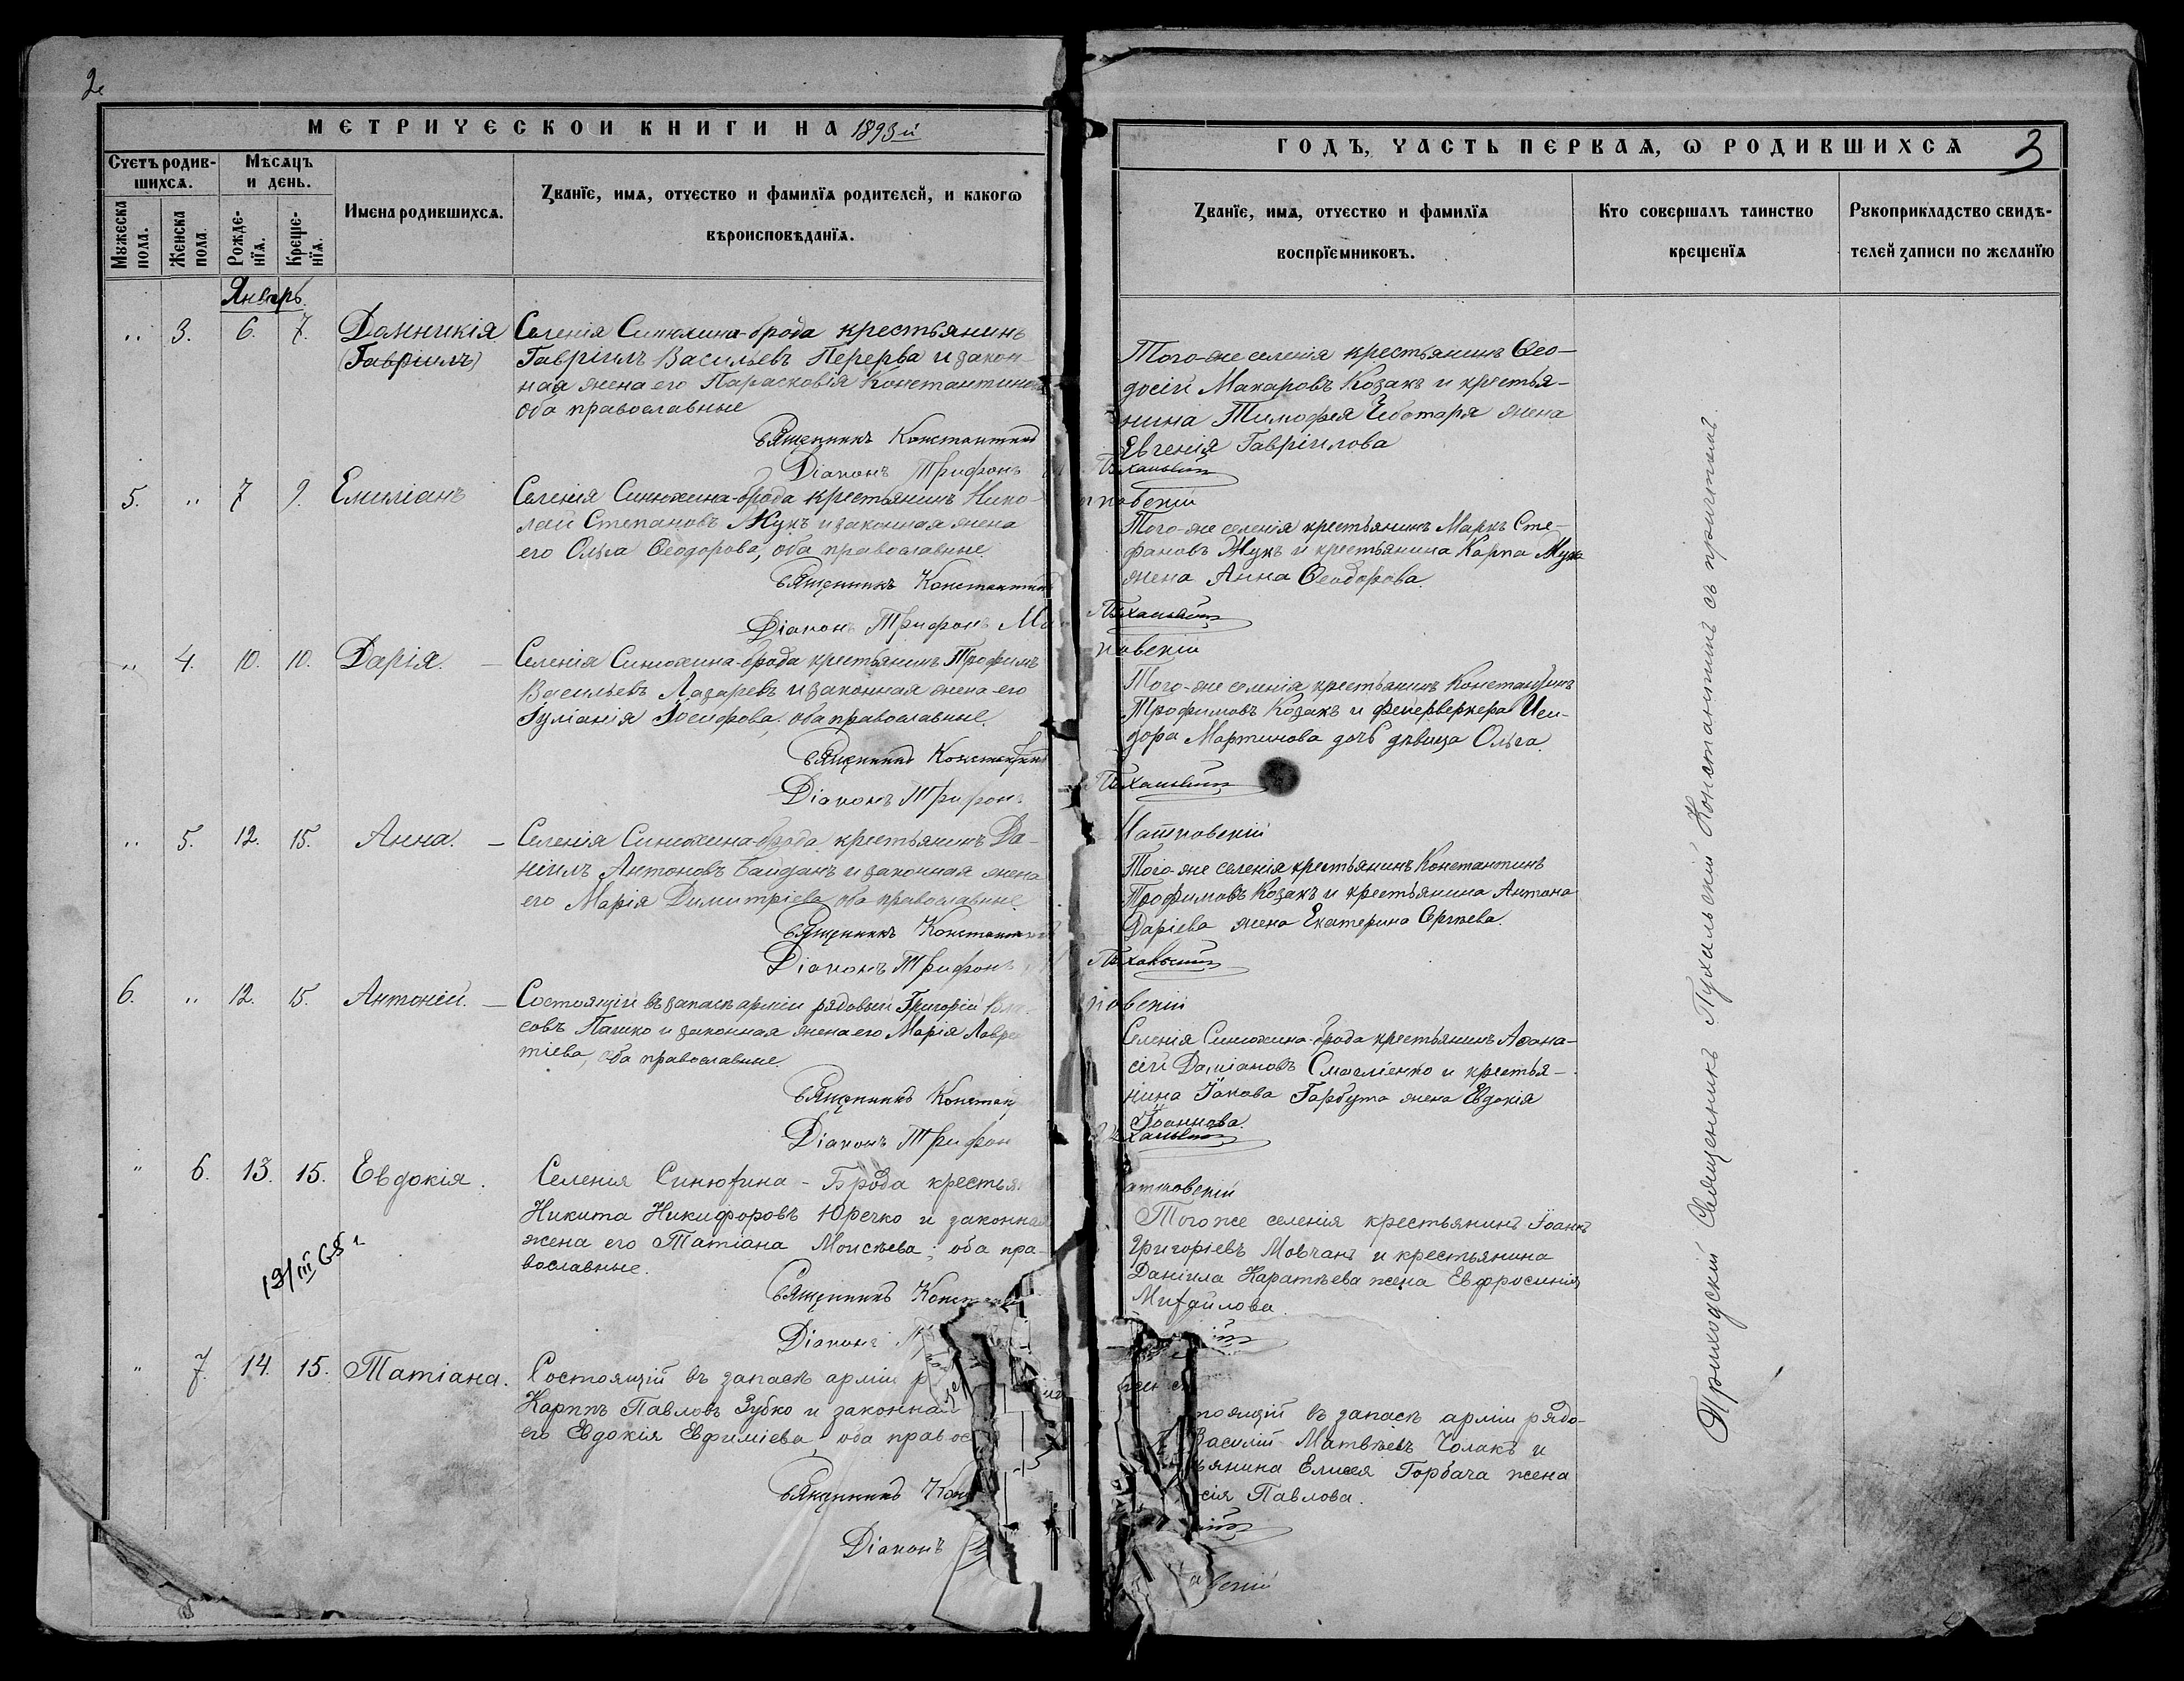 2.
МЕТРИЧЕСКОЙ КНИГИ НА 1893й
Счетъ родив-
шихся.
Мѣсяцъ
и день.
Мужеска
пола.
Женска
пола
Рожде-
нїя.
Креще-
нїя.
Имена родившихся.
Званїе, имя, отчество и фамилїя родителей, и какогѡ
вѣроисповѣданїя.
Январь.
" 3. 6. 7. Домникія
(Гавріилъ)
Селенія Синюхина-брода крестьянинъ
Гавріилъ Васильевъ Перерва и закон-
ная жена его Парасковія Константинова
оба православные
Священникъ Константинъ
Діаконъ Трифонъ
5. " 7 9. Емиліанъ
Селенія Синюхина-брода крестьянинъ Нико-
лай Степановъ Жукъ и законная жена
его Ольга Ѳеодорова, оба православные.
Священникъ Константинъ
Діаконъ Трифонъ
" 4. 10. 10. Дарія.
Селенія Синюхина-брода крестьянинъ Трофимъ
Васильевъ Лазаревъ и законная жена его
Іуліанія Іосифова, оба православные.
Священникъ Константинъ
Діаконъ Трифонъ
" 5. 12. 15. Анна.
Селенія Синюхина-брода крестьянинъ Да-
ніилъ Антоновъ Байданъ и законная жена
его Марія Димитріева оба православные.
Священникъ Константинъ
Діаконъ Трифонъ
6. " 12. 15. Антоній.
Состоящій въ запасѣ арміи рядовый Григорій Вла-
совъ Пашко и законная жена его Марія Лавре
тіева, оба православные.
Священникъ Констан
Діаконъ Трифон
" 6. 13. 15. Евдокія.
Селенія Синюхина-Брода крестья
Никита Никифоровъ Юречко и законная
жена его Татіана Моисѣева; оба пра-
вославные.
Священникъ Конст
Діаконъ
19/III 65 г
" 7. 14. 15. Татіана.
Состоящій въ запасѣ арміи р
Карпъ Павловъ Зубко и законная
его Евдокія Евфиміева, оба правос
Священникъ Кон
Діаконъ
ГОДЪ, ЧАСТЬ ПЕРВАЯ, Ѡ РОДИВШИХСЯ
3
Званїе, имя, отчество и фамилїя
воспрїемниковъ.
Кто совершалъ таинство
крещенїя
Рукоприкладство свидѣ-
телей записи по желанїю
Того-же селенія крестьянинъ Ѳео-
досій Макаровъ Козакъ и крестья-
нина Тимофея Чеботаря жена
Евгенія Гавріилова
Пухальскій
новскій
Того-же селенія крестьянинъ Маркъ Сте-
фановъ Жукъ и крестьянина Карпа Жука
жена Анна Ѳеодорова.
Пухальскій
новскій
Того-же селенія крестьянинъ Константинъ
Трофимовъ Козакъ и фейерверкера Иси-
дора Мартинова дочь дѣвица Ольга.
Пухальскій
Того-же селенія крестьянинъ Константинъ
Трофимовъ Козакъ и крестьянина Антона
Даріева жена Екатерина Сергѣева.
Пухальскій
новскій
Селенія Синюхина-брода крестьянинъ Аѳана-
сій Даміановъ Смагліенко и крестья-
нина Іакова Гарбута жена Евдокія
Іоаннова.
хальскій
Того же селенія крестьянинъ Іоаннъ
Григоріевъ Мовчанъ и крестьянина
Даніила Каратѣева жена Евфросинія
Михайлова.
тоящій въ запасѣ арміи рядо-
Василій Матвѣевъ Чолакъ и
ьянина Елисея Горбача жена
сія Павлова.
вскій
Приходскій Священникъ Пухальскій Константинъ съ причтомъ.